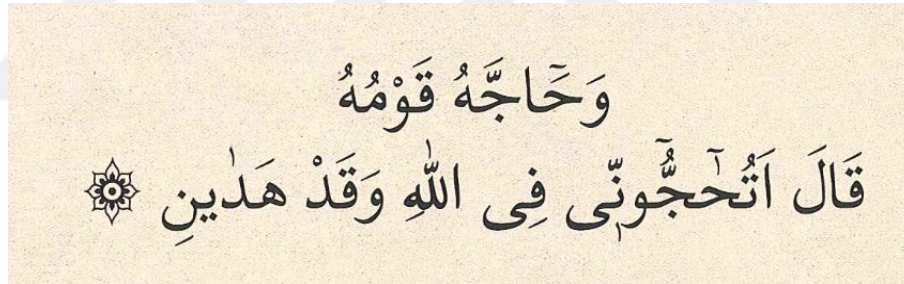 وَحَٓاجَّهُ قَوْمُهُ
قَالَ اَتُحَٓاجُّٓونّ۪ى فِى اللّٰهِ وَقَدْ هَدٰينِ